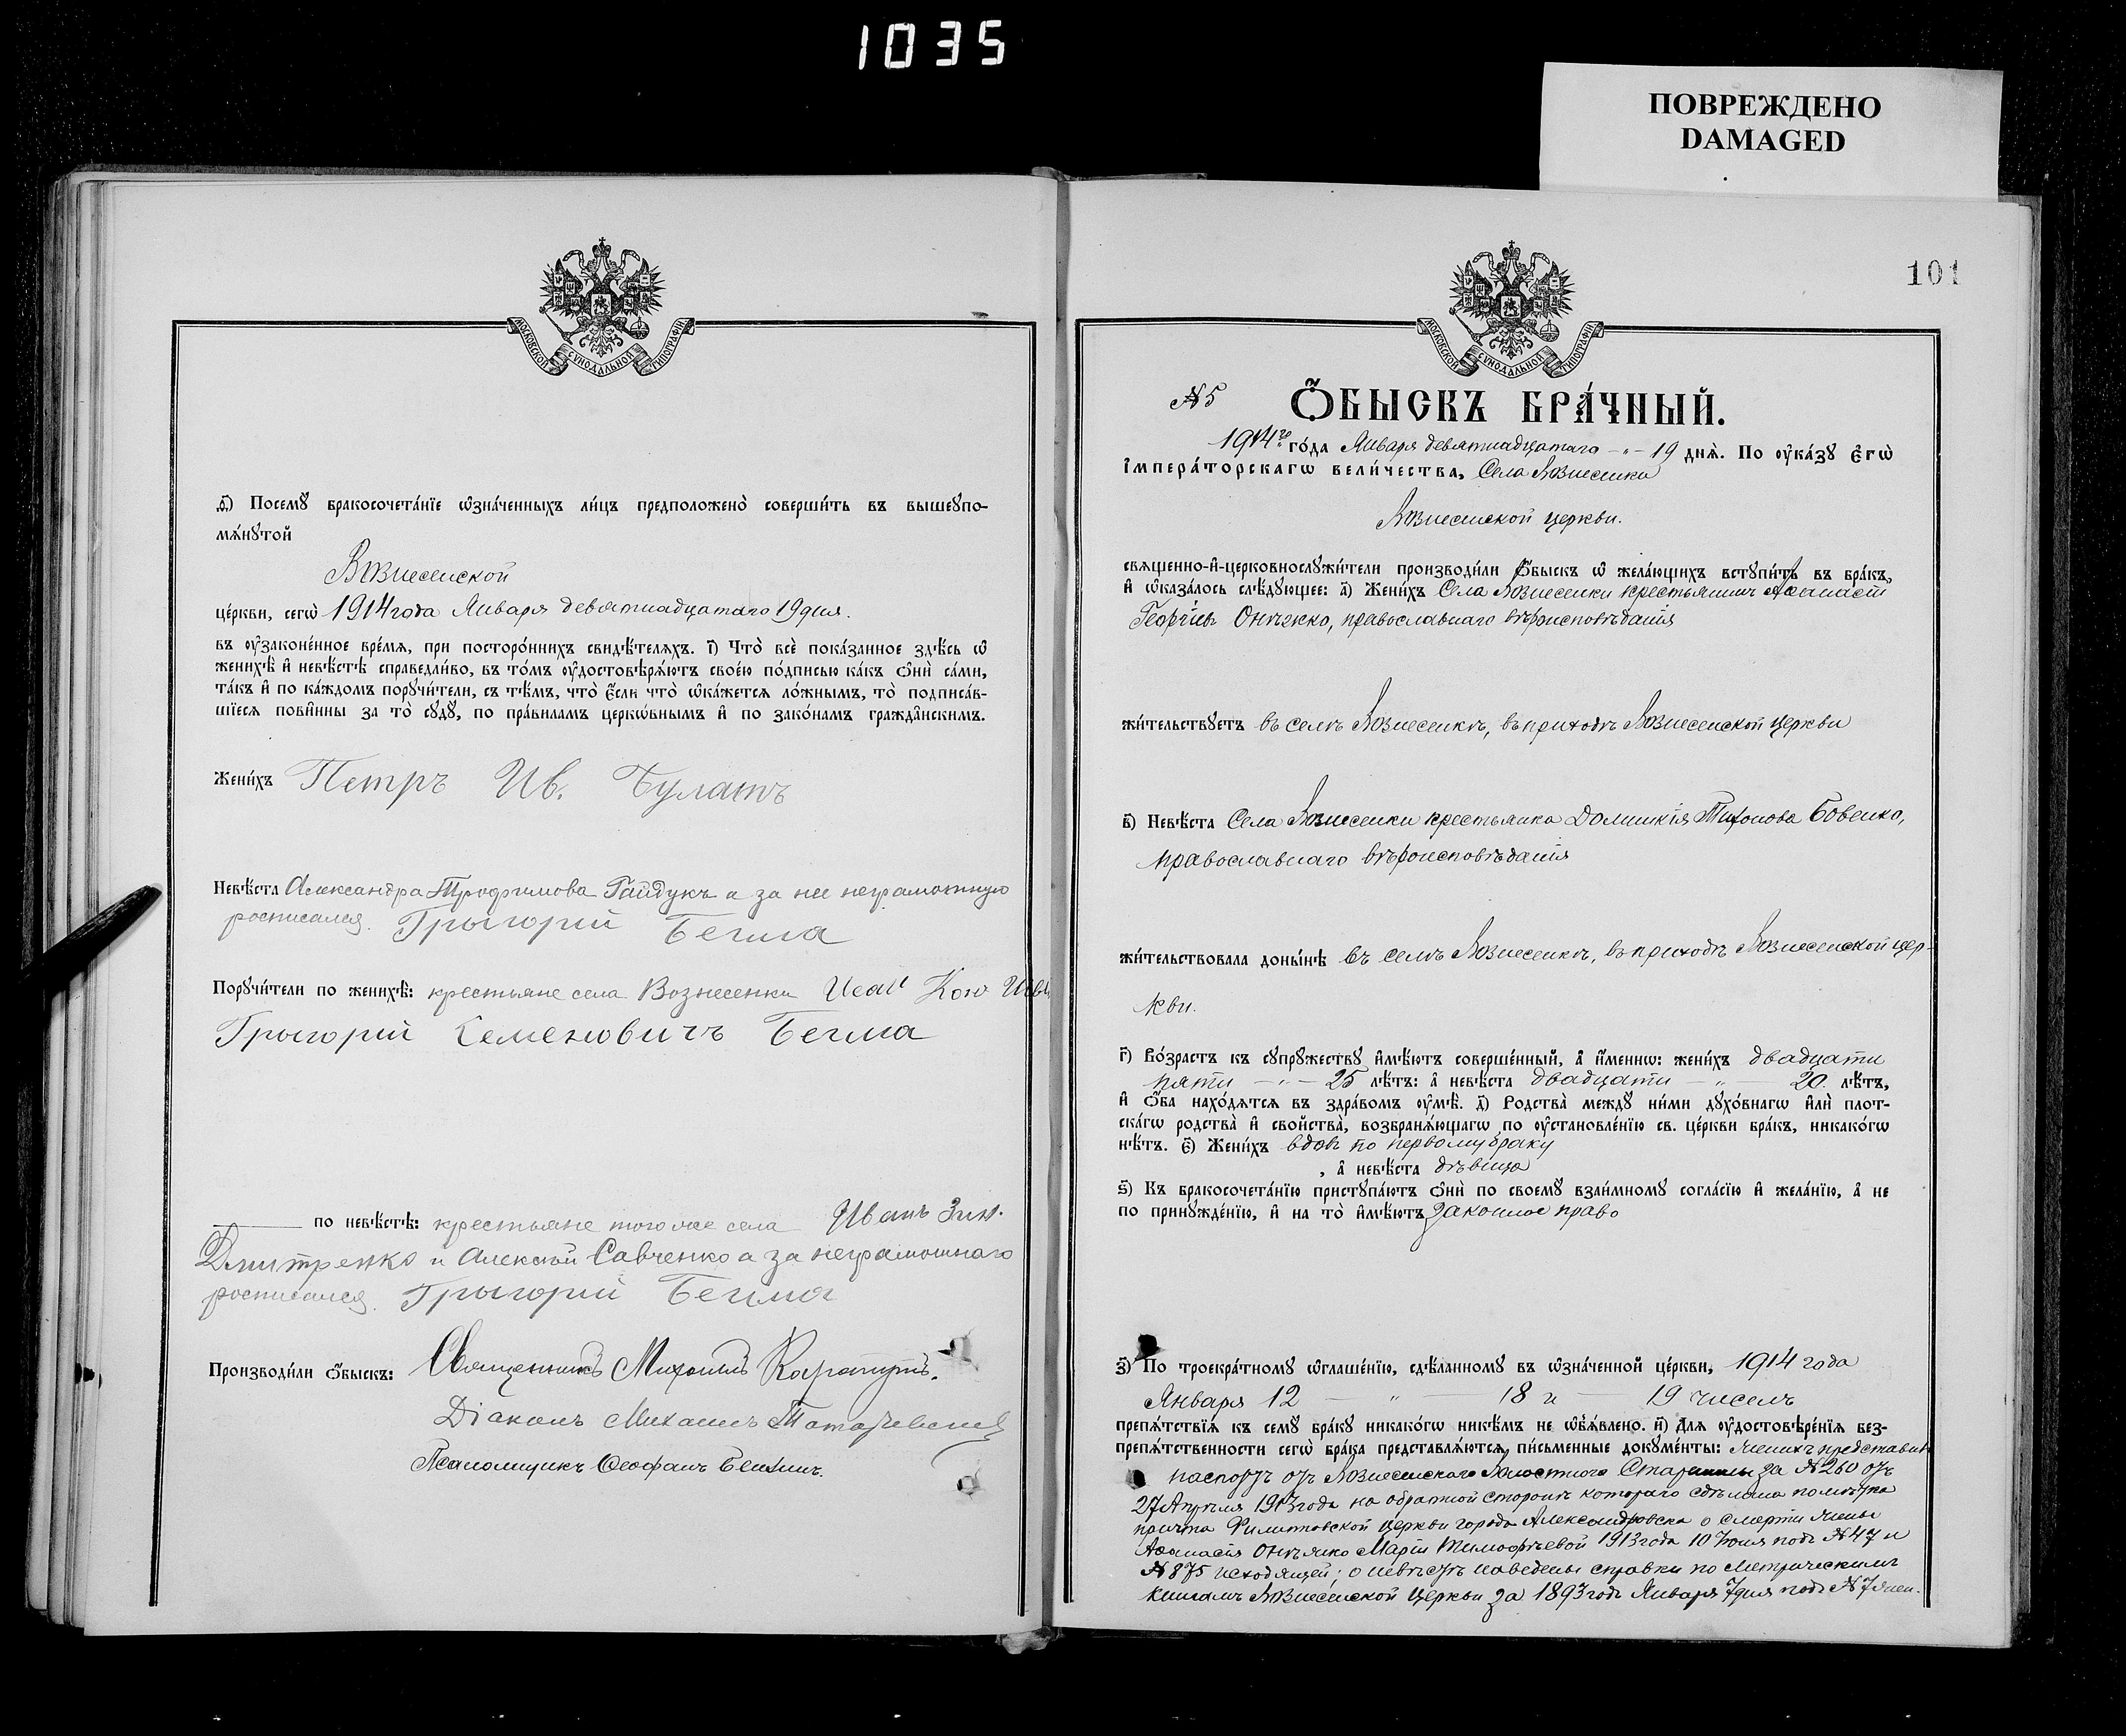 1035
ПОВРЕЖДЕНО
DAMAGED
МОСКОВСКОЙ СѴНОДАЛЬНОЙ ТИПОГРАФІИ
ѳ҃) Посемꙋ̀ бракосочета́нїе ѡ҆зна́ченныхъ ли́цъ предположено̀ соверши́ть въ вышеꙋпо-
мѧ́нꙋтой
Вознесенской
це́ркви, сегѡ̀ 1914 года Января девятнадцатаго 19 дня.
въ ᲂу҆законе́нное вре́мѧ, при посторо́ннихъ свидѣ́телѧхъ. і҃) Что̀ всѐ пока́занное здѣ́сь ѡ҆
женихѣ̀ и҆ невѣ́стѣ справедли́во, въ то́мъ ᲂу҆достовѣрѧ́ютъ свое́ю по́дписью ка́къ ѻ҆нѝ са́ми,
та́къ и҆ по ка́ждомъ порꙋчи́тели, съ тѣ́мъ, что̀ є҆́сли что̀ ѡ҆ка́жетсѧ ло́жнымъ, то̀ подписа́в-
шїесѧ пови́нны за то̀ сꙋдꙋ̀, по пра́виламъ церкѡ́внымъ и҆ по зако́намъ гражда́нскимъ.
Жени́хъ Петръ Ив. Булатъ
Невѣ́ста Александра Трофимова Гайдукъ а за нее неграмотную
росписался Грыгорий Бегма
Порꙋчи́тели по женихѣ̀: крестьяне села Вознесенки Исай Кон
Грыгорий Семеновичъ Бегма
по невѣ́стѣ: крестьяне того же села Иванъ Зин.
Дмитренко и Алексѣй Савченко а за неграмотнаго
росписался Грыгорий Бегма
Производи́ли ѻ҆́быскъ: Священникъ Михаилъ
Діаконъ Михаилъ
Псаломщикъ Ѳеофанъ
101
МОСКОВСКОЙ СѴНОДАЛЬНОЙ ТИПОГРАФІИ
№ 5 Ѻ҆́БЫСКЪ БРА́ЧНЫЙ.
1914 го го́да Января девятнадцатаго — „ — 19 днѧ̀. По ᲂу҆ка́зꙋ Є҆гѡ̀
І҆мпера́торскагѡ вели́чества, Села Вознесенки
Вознесенской церкви.
свѧще́нно-и҆-церковнослꙋжи́тели производи́ли ѻ҆́быскъ ѡ҆ жела́ющихъ встꙋпи́ть въ бра́къ,
и҆ ѡ҆каза́лось слѣ́дꙋющее: а҃) Жени́хъ Села Вознесенки крестьянинъ Аѳанасій
Георгіевъ Онѣжко, православнаго вѣроисповѣданія
жи́тельствꙋетъ въ селѣ Вознесенкѣ, въ приходѣ Вознесенской церкви
в҃) Невѣ́ста Села Вознесенки крестьянка Домникія Тихонова Бовенко,
православнаго вѣроисповѣданія
жи́тельствовала доны́нѣ въ селѣ Вознесенкѣ, въ приходѣ Вознесенской цер-
кви.
г҃) Во́зрастъ къ сꙋпрꙋ́жествꙋ и҆мѣ́ютъ соверше́нный, а҆ и҆́меннѡ: жени́хъ двадцати
пяти — „ — 25 лѣ́тъ: а҆ невѣ́ста двадцати — „ — 20. лѣ́тъ,
и҆ ѻ҆́ба нахо́дѧтсѧ въ здра́вомъ ᲂу҆мѣ̀. д҃) Родства̀ междꙋ̀ ни́ми дꙋхо́внагѡ и҆лѝ плот-
ска́гѡ родства̀ и҆ свойства̀, возбранѧ́ющагѡ по ᲂу҆становле́нїю св. це́ркви бра́къ, никако́гѡ
нѣ́тъ. є҃) Жени́хъ вдовъ по первому браку
, а҆ невѣ́ста дѣвица
ѕ҃) Къ бракосочета́нїю пристꙋпа́ютъ ѻ҆нѝ по своемꙋ̀ взаи́мномꙋ согла́сїю и҆ жела́нїю, а҆ не
по принꙋжде́нїю, и҆ на то̀ и҆мѣ́ютъ законное право
з҃) По троекра́тномꙋ ѡ҆глаше́нїю, сдѣ́ланномꙋ въ ѡ҆зна́ченной це́ркви, 1914 года
Января 12 — „ — 18 и — 19 чиселъ
препѧ́тствїѧ къ семꙋ̀ бра́кꙋ никако́гѡ никѣ́мъ не ѡ҆б̾ѧ́влено. и҃) Длѧ ᲂу҆достовѣре́нїѧ без-
препѧ́тственности сегѡ̀ бра́ка представлѧ́ютсѧ пи́сьменные докꙋме́нты: женихъ представилъ
паспортъ отъ Вознесенскаго Волостного Старшины за № 260 отъ
27 Апрѣля 1913 года на обратной сторонѣ котораго сдѣлана помѣтка
причта Филипповской церкви города Александровска о смерти жены
Аѳанасія Онѣжко Маріи Тимофѣевой 1913 года 10 Іюня подъ № 47 и
№ 875 исходящей; о невѣстѣ наведены справки по Метрическимъ
книгамъ Вознесенской церкви за 1893 годъ Января 7 дня подъ № 7 жен.